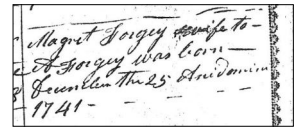 Magret Forgey wife to -
A Forgey was born -
Decembem the 25 Anidominni
1741 -